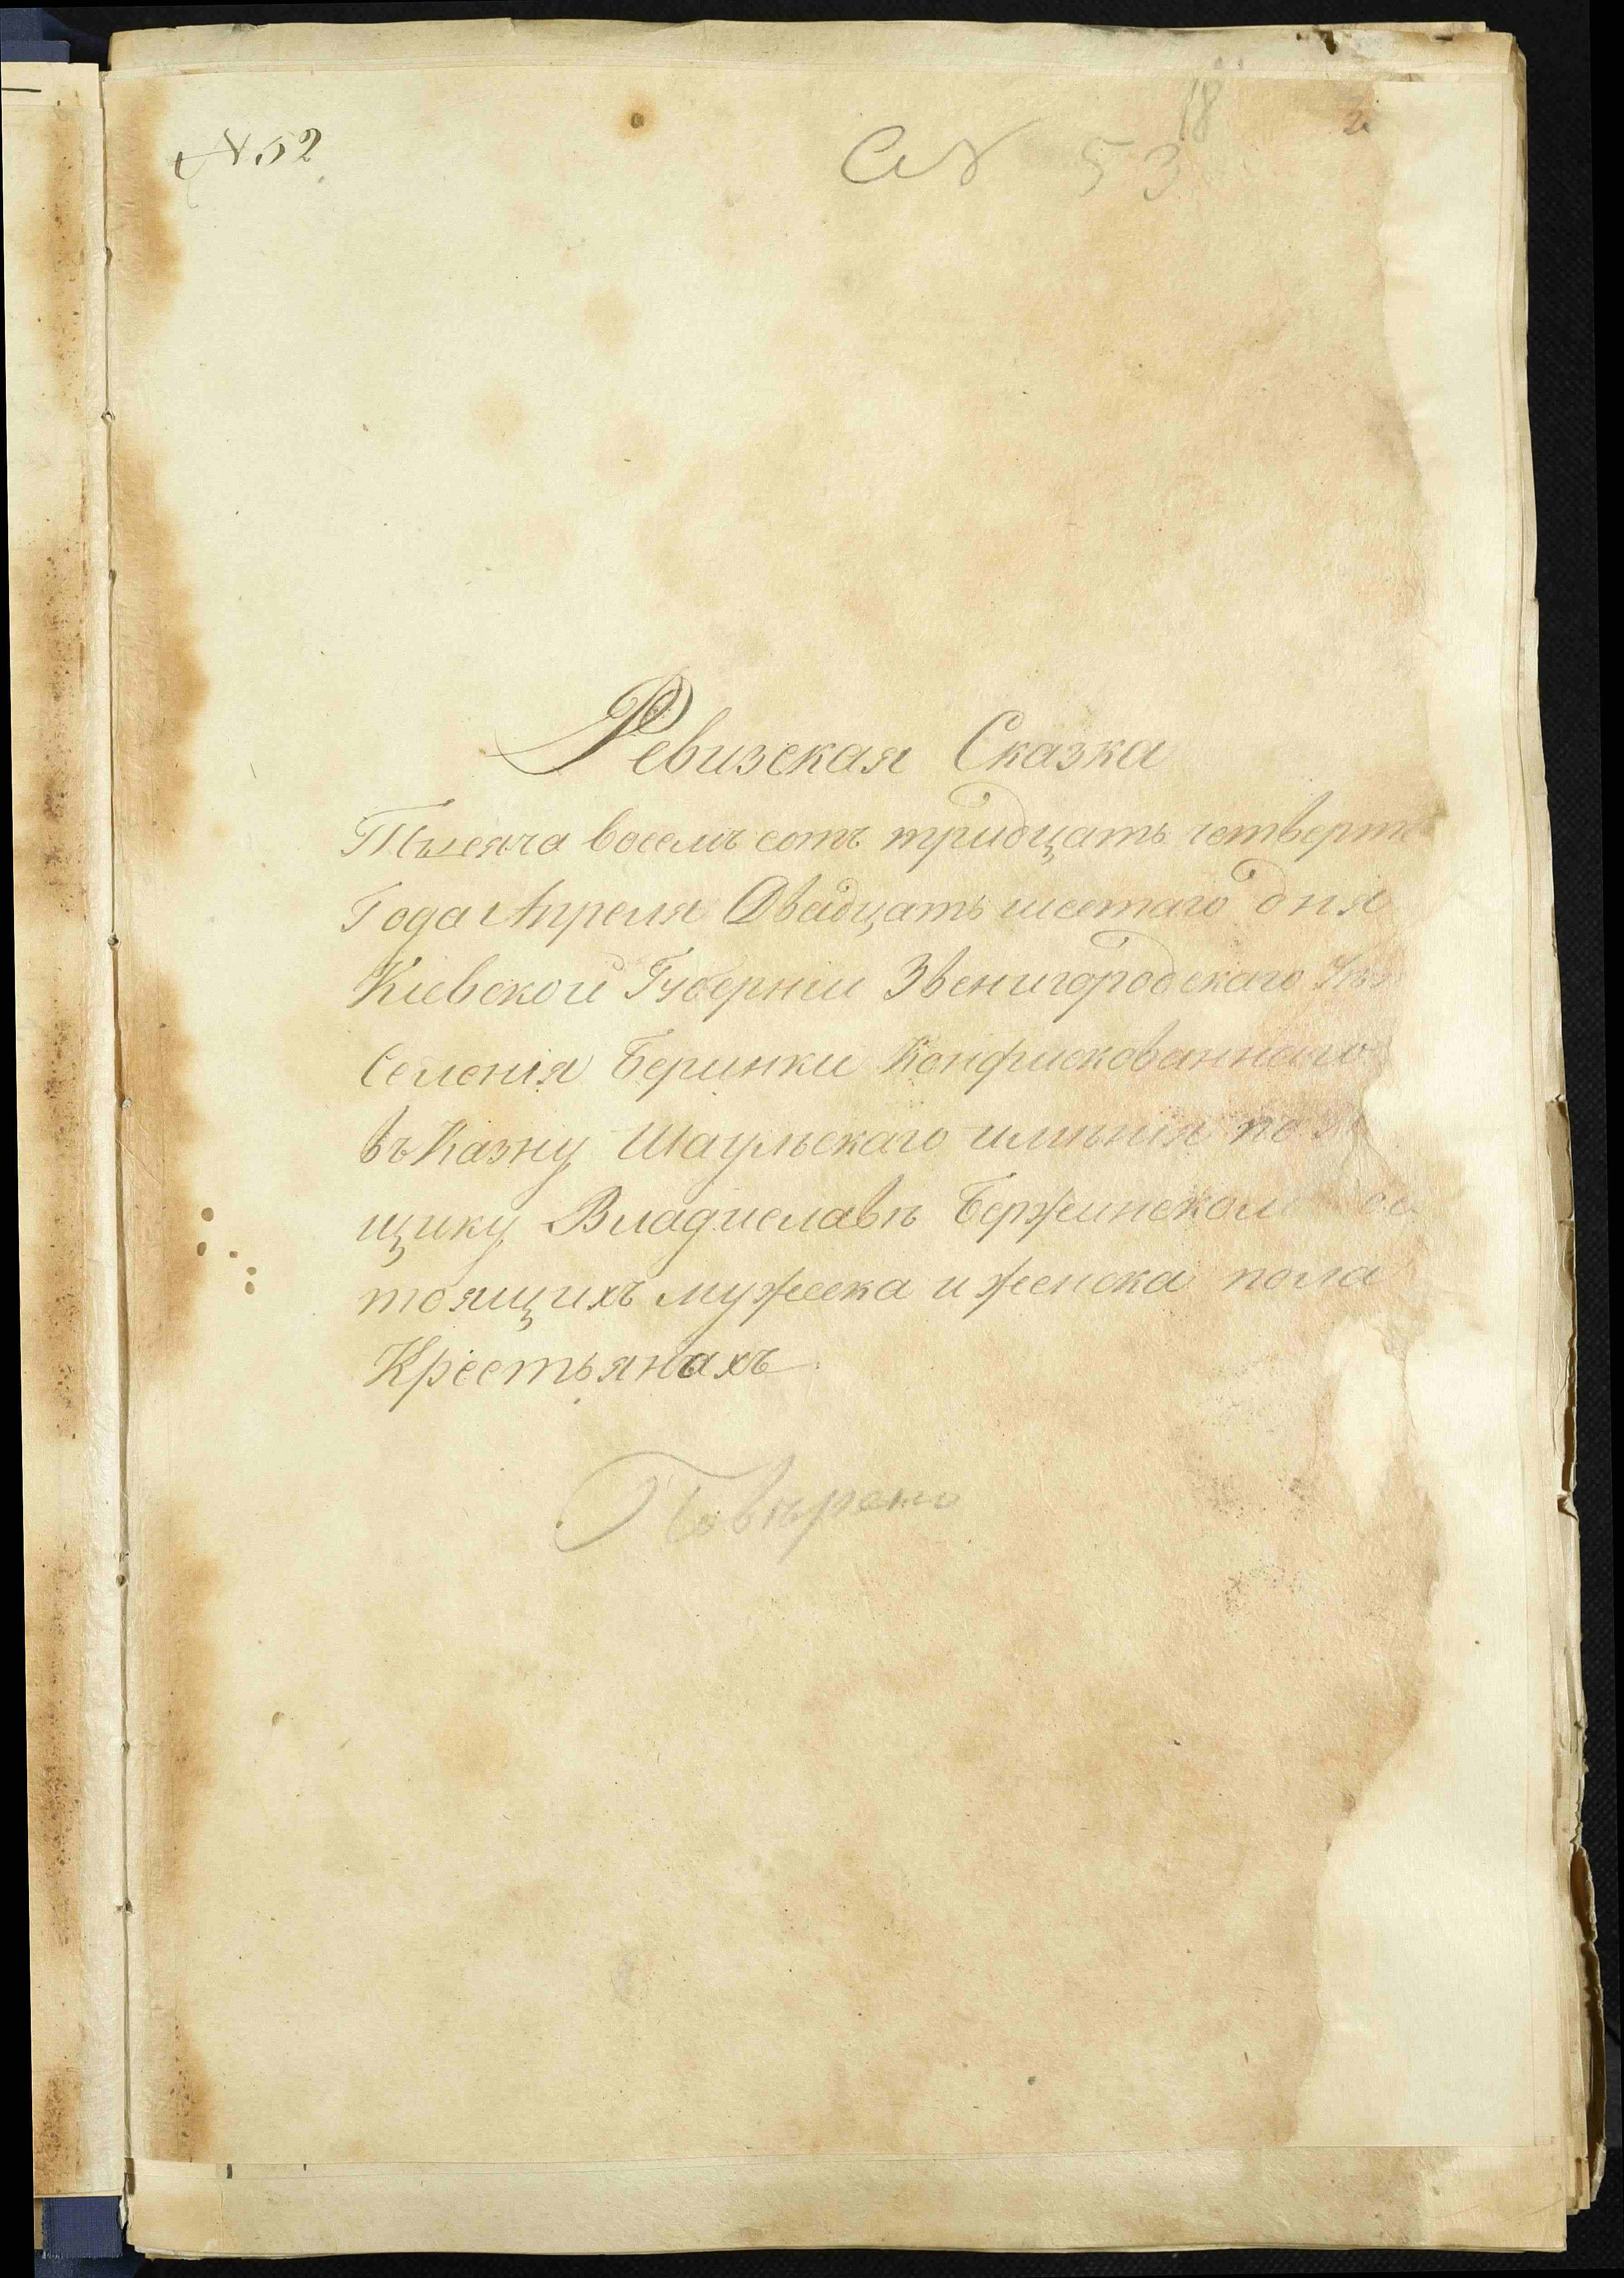 № 52
18
2
№ 53
Ревизская Сказка
Тысяча восемъ сотъ тридцать четверт
Года Апреля Двадцать шестаго дня
Кіевской Губерніи Звенигородскаго
Селенія Беринки Конфискованнаго
въ Казну Шаульскаго имѣнія
щику Владиславѣ Бержинском
тоящихъ мужеска и женска пола
Крестьянахъ
Повѣрено